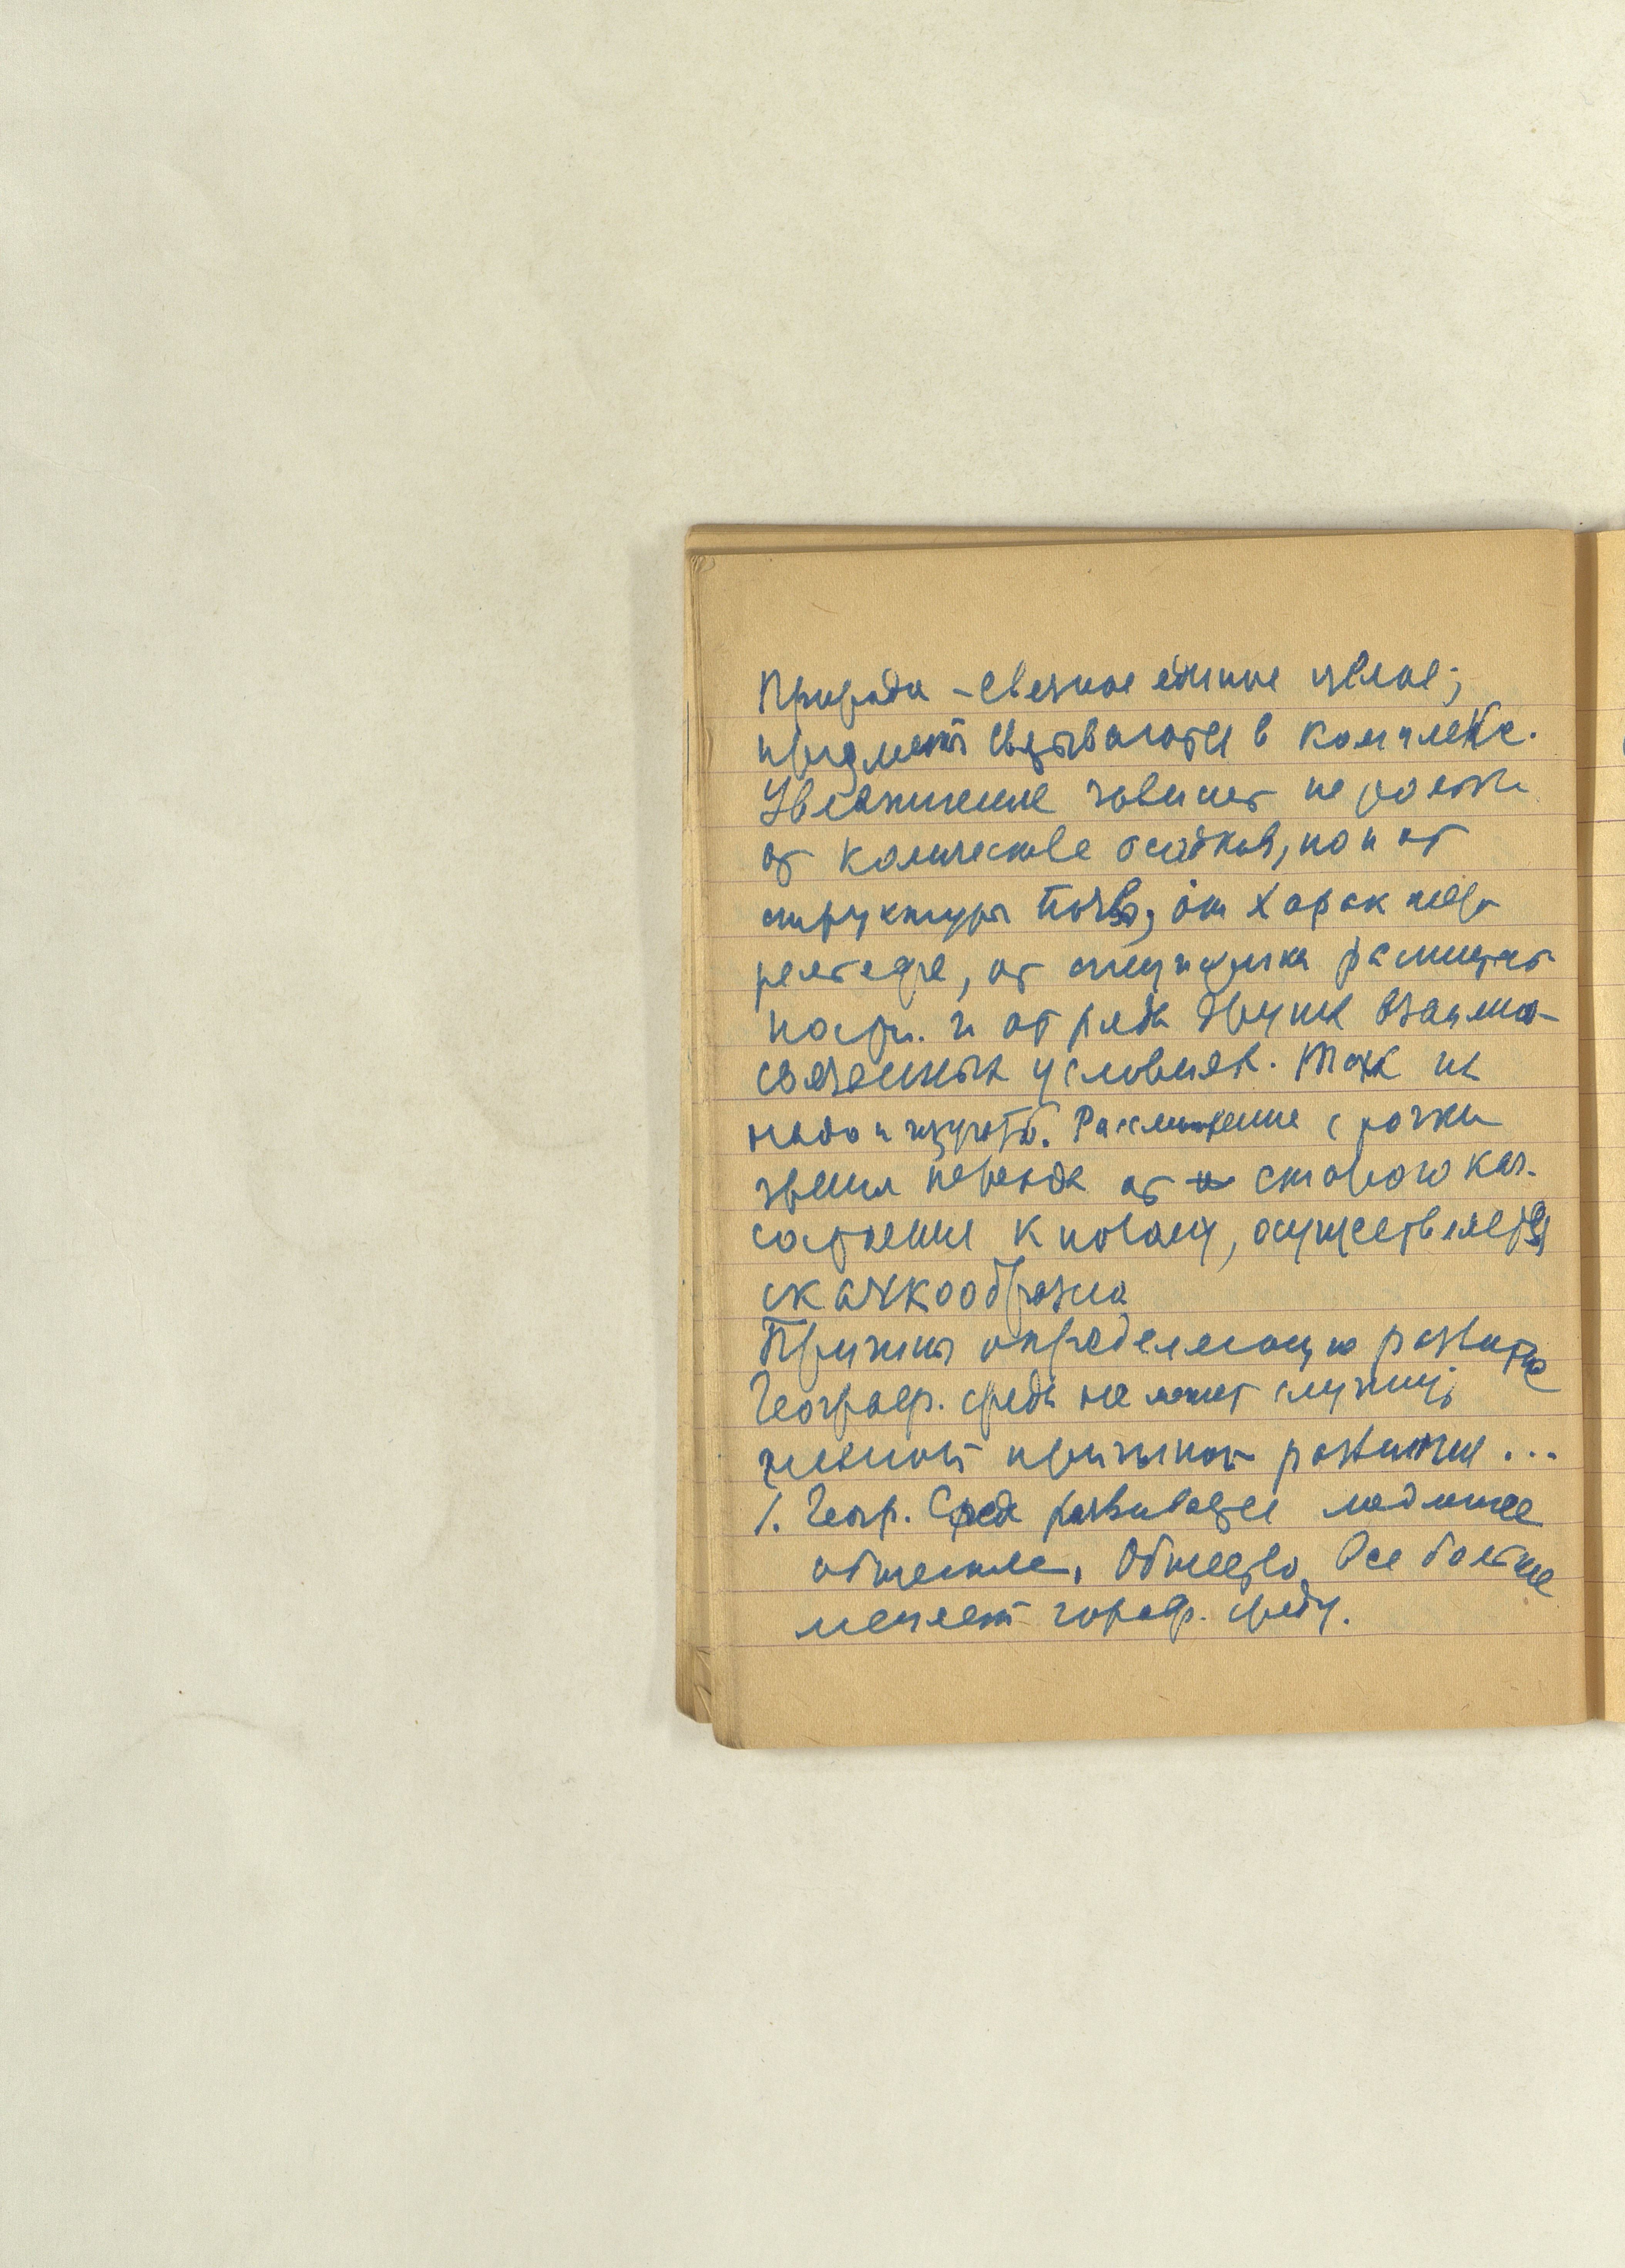 Природа - связное единое целое;
предметы связываются в комплекс.
Увлажнение зависит не только
от количества осадков, но и от
структуры почв, от характера
рельефа, от специфики растит.
покр. и от ряда других взаимо-
связанных условиях. Так их
надо и изучать. Рассмотрение с точки
зрения перехода от старого кач.
состояния к новому, осуществляется
скачкообразно
Причины определяющую развитие
Географ. среда не может служить
главной причиной развития ...
1. Геогр. Среда развивается медленнее
общества. Общество все больше
меняет географ. среду.